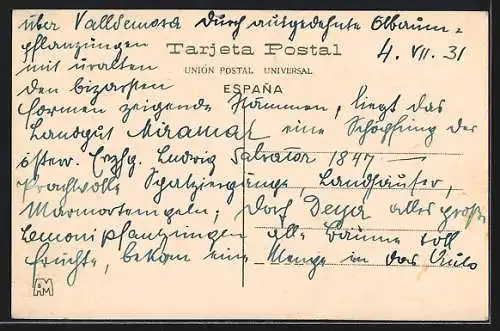 über Valldemosa durch ausgedehnte Ölbaum=
pflanzungen
Tarjeta Postal
4. VII. 31
mit uralten
UNIÓN POSTAL UNIVERSAL
den bizarsten
ESPAÑA
Formen zeigende Stämmen, liegt das
Landgut Miramar eine Schöpfung der
österr. Erzhg. Ludwig Salvator 1847 —
Prachtvolle Spatziergänge, Landhäuser,
Marmortempeln; Dorf Deya alles große
Lemonipflanzungen alle Bäume voll
Früchte, bekam eine Menge in das Auto
AM